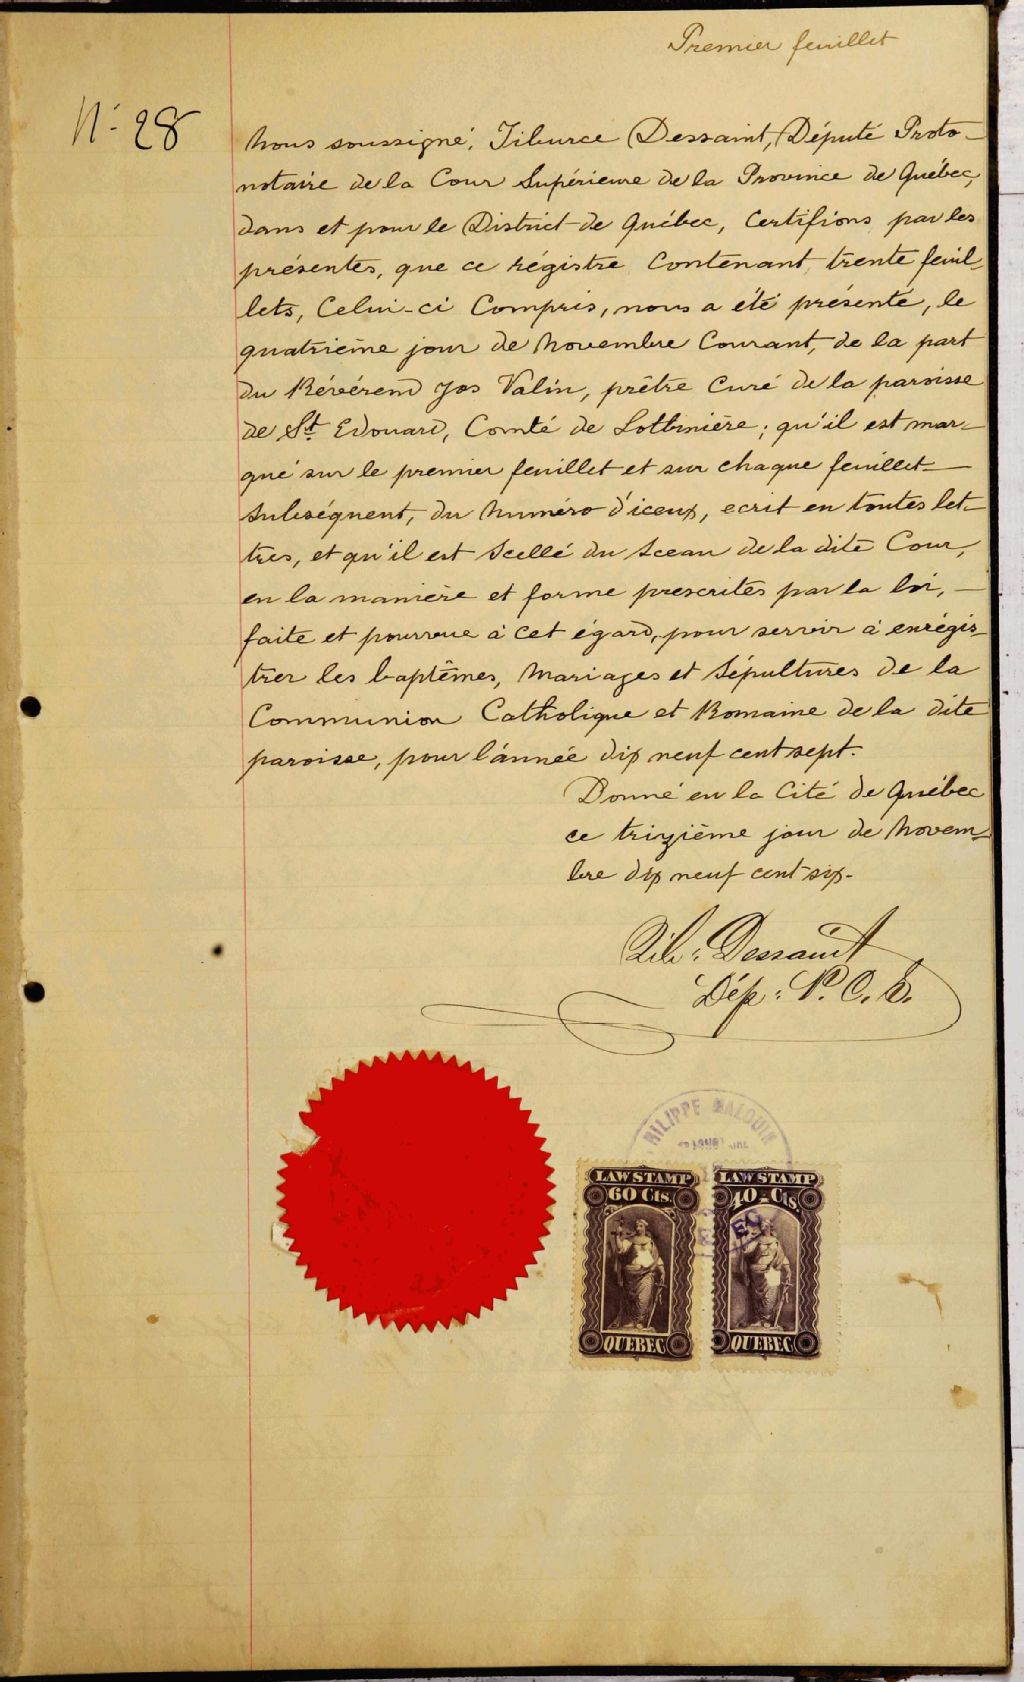 Premier feuillet
N° 28
Nous soussigné, Tiburce Dessaint, Député Proto-
notaire de la Cour Supérieure de la Province de Québec,
dans et pour le District de Québec, Certifions par les
présentes, que ce régistre Contenant trente feuil-
lets, Celui-ci Compris, nous a été présenté, le
quatrième jour de Novembre Courant, de la part
du Révérend Jos Valin, prêtre Curé de la paroisse
de St Edouard, Comté de Lotbinière; qu'il est mar-
qué sur le premier feuillet et sur chaque feuillet
subséquent, du numéro d'iceux, ecrit en toutes let-
tres, et qu'il est scellé du sceau de la dite Cour,
en la manière et forme prescrites par la loi, —
faite et pourvue à cet égard, pour servir à enrégis-
trer les baptêmes, Mariages et Sépultures de la
Communion Catholique et Romaine de la dite
paroisse, pour l'année dix neuf cent sept.
Donné en la Cité de Québec
ce trizième jour de Novem-
bre dix neuf cent six.
Tib: Dessaint
Dép: P. C. S.
PHILIPPE MALOUIN
LAW STAMP
60 Cts.
QUEBEC
LAW STAMP
40 Cts
QUEBEC